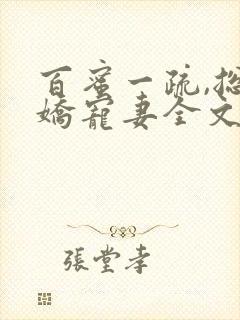 百蜜一疏,总
娇宠妻全文
張堂幸